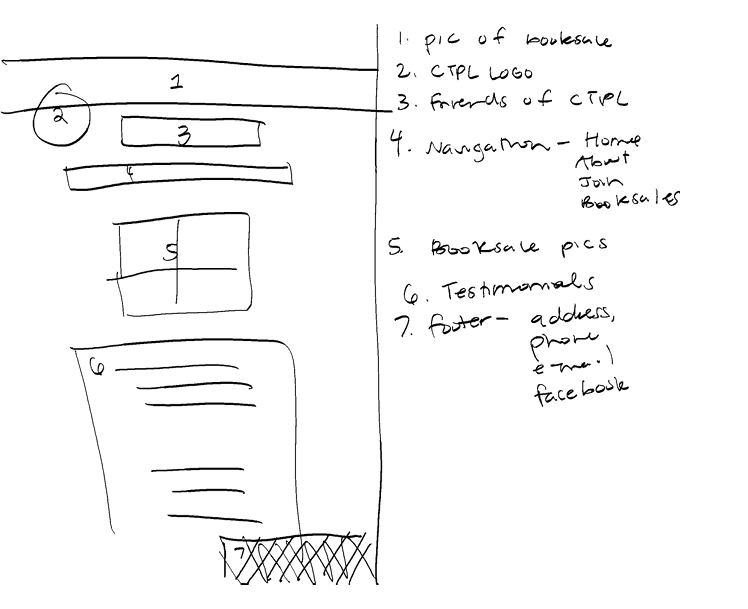 1
2
3
4
5
6
7
1. pic of booksale
2. CTPL LOGO
3. Friends of CTPL
4. Navigation - Home
About
Join
Booksales
5. Booksale pics
6. Testimonials
7. footer - address,
phone
e-mail
facebook